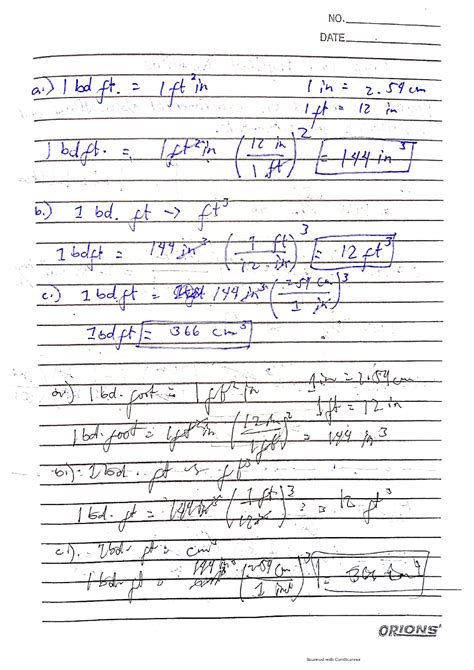 NO.
DATE
a.) 1 bd ft. = 1 ft² in 1 in = 2.54 cm
1 ft = 12 in
1 bdft. = 1 ft² in (12 in / 1 ft)² = 144 in³
b.) 1 bd. ft → ft³
1 bdft = 144 in³ (1 ft / 12 in)³ = 12 ft³
c.) 1 bdft = 144 in³ (2.54 cm / 1 in)³
1 bdft = 366 cm³
1 bd. foot = 1 ft² in 1 in = 2.54 cm
1 ft = 12 in
1 bd. foot = 1 ft² in (12 in / 1 ft)² = 144 in³
1 bd. ft ft³
1 bd. ft = 144 in³ (1 ft / 12 in)³ = 12 ft³
bd. ft = cm³
1 bd. ft = 144 in³ (2.54 cm / 1 in)³ = 366 cm³
ORIONS
Scanned with CamScanner